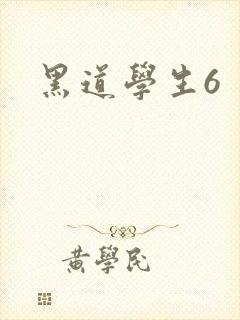 黑道學生6
黃學民